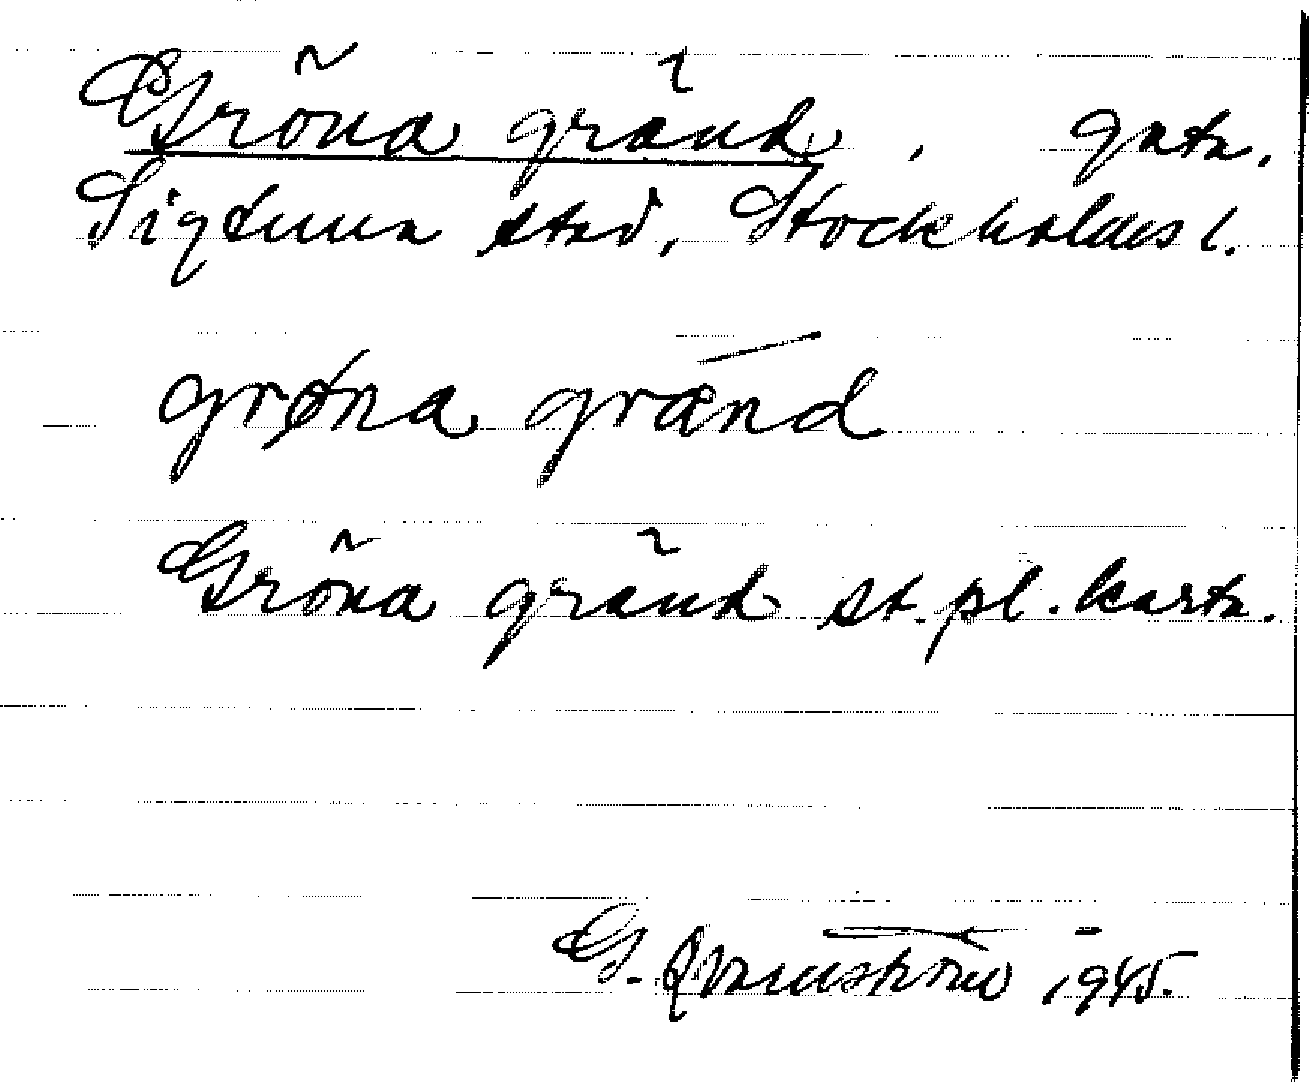 Gröna gränd, gata.
Sigtuna stad, Stockholms l.
grøna grænd
Gröna gränd st. pl. karta.
G. Qvarnström 1945.